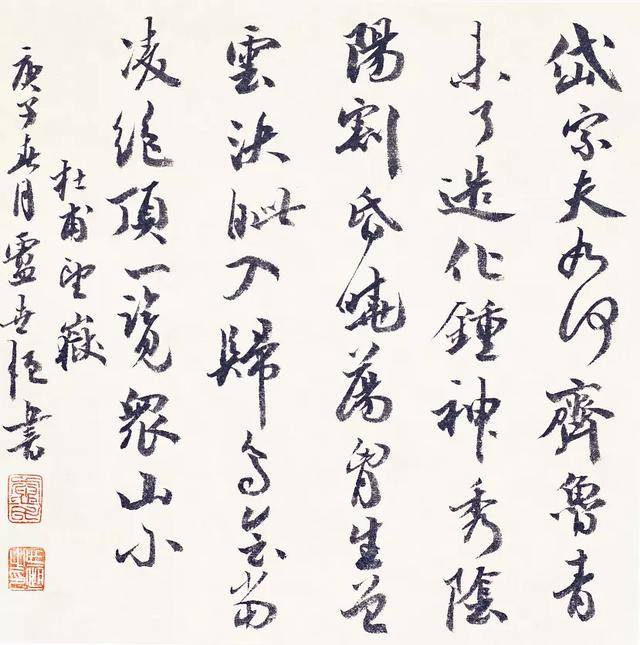 岱宗夫如何齊魯青
未了造化鍾神秀陰
陽割昏曉蕩胷生曾
雲決眦入歸鳥會當
凌絕頂一覽眾山小
杜甫望嶽
庚子春月盧世恒書